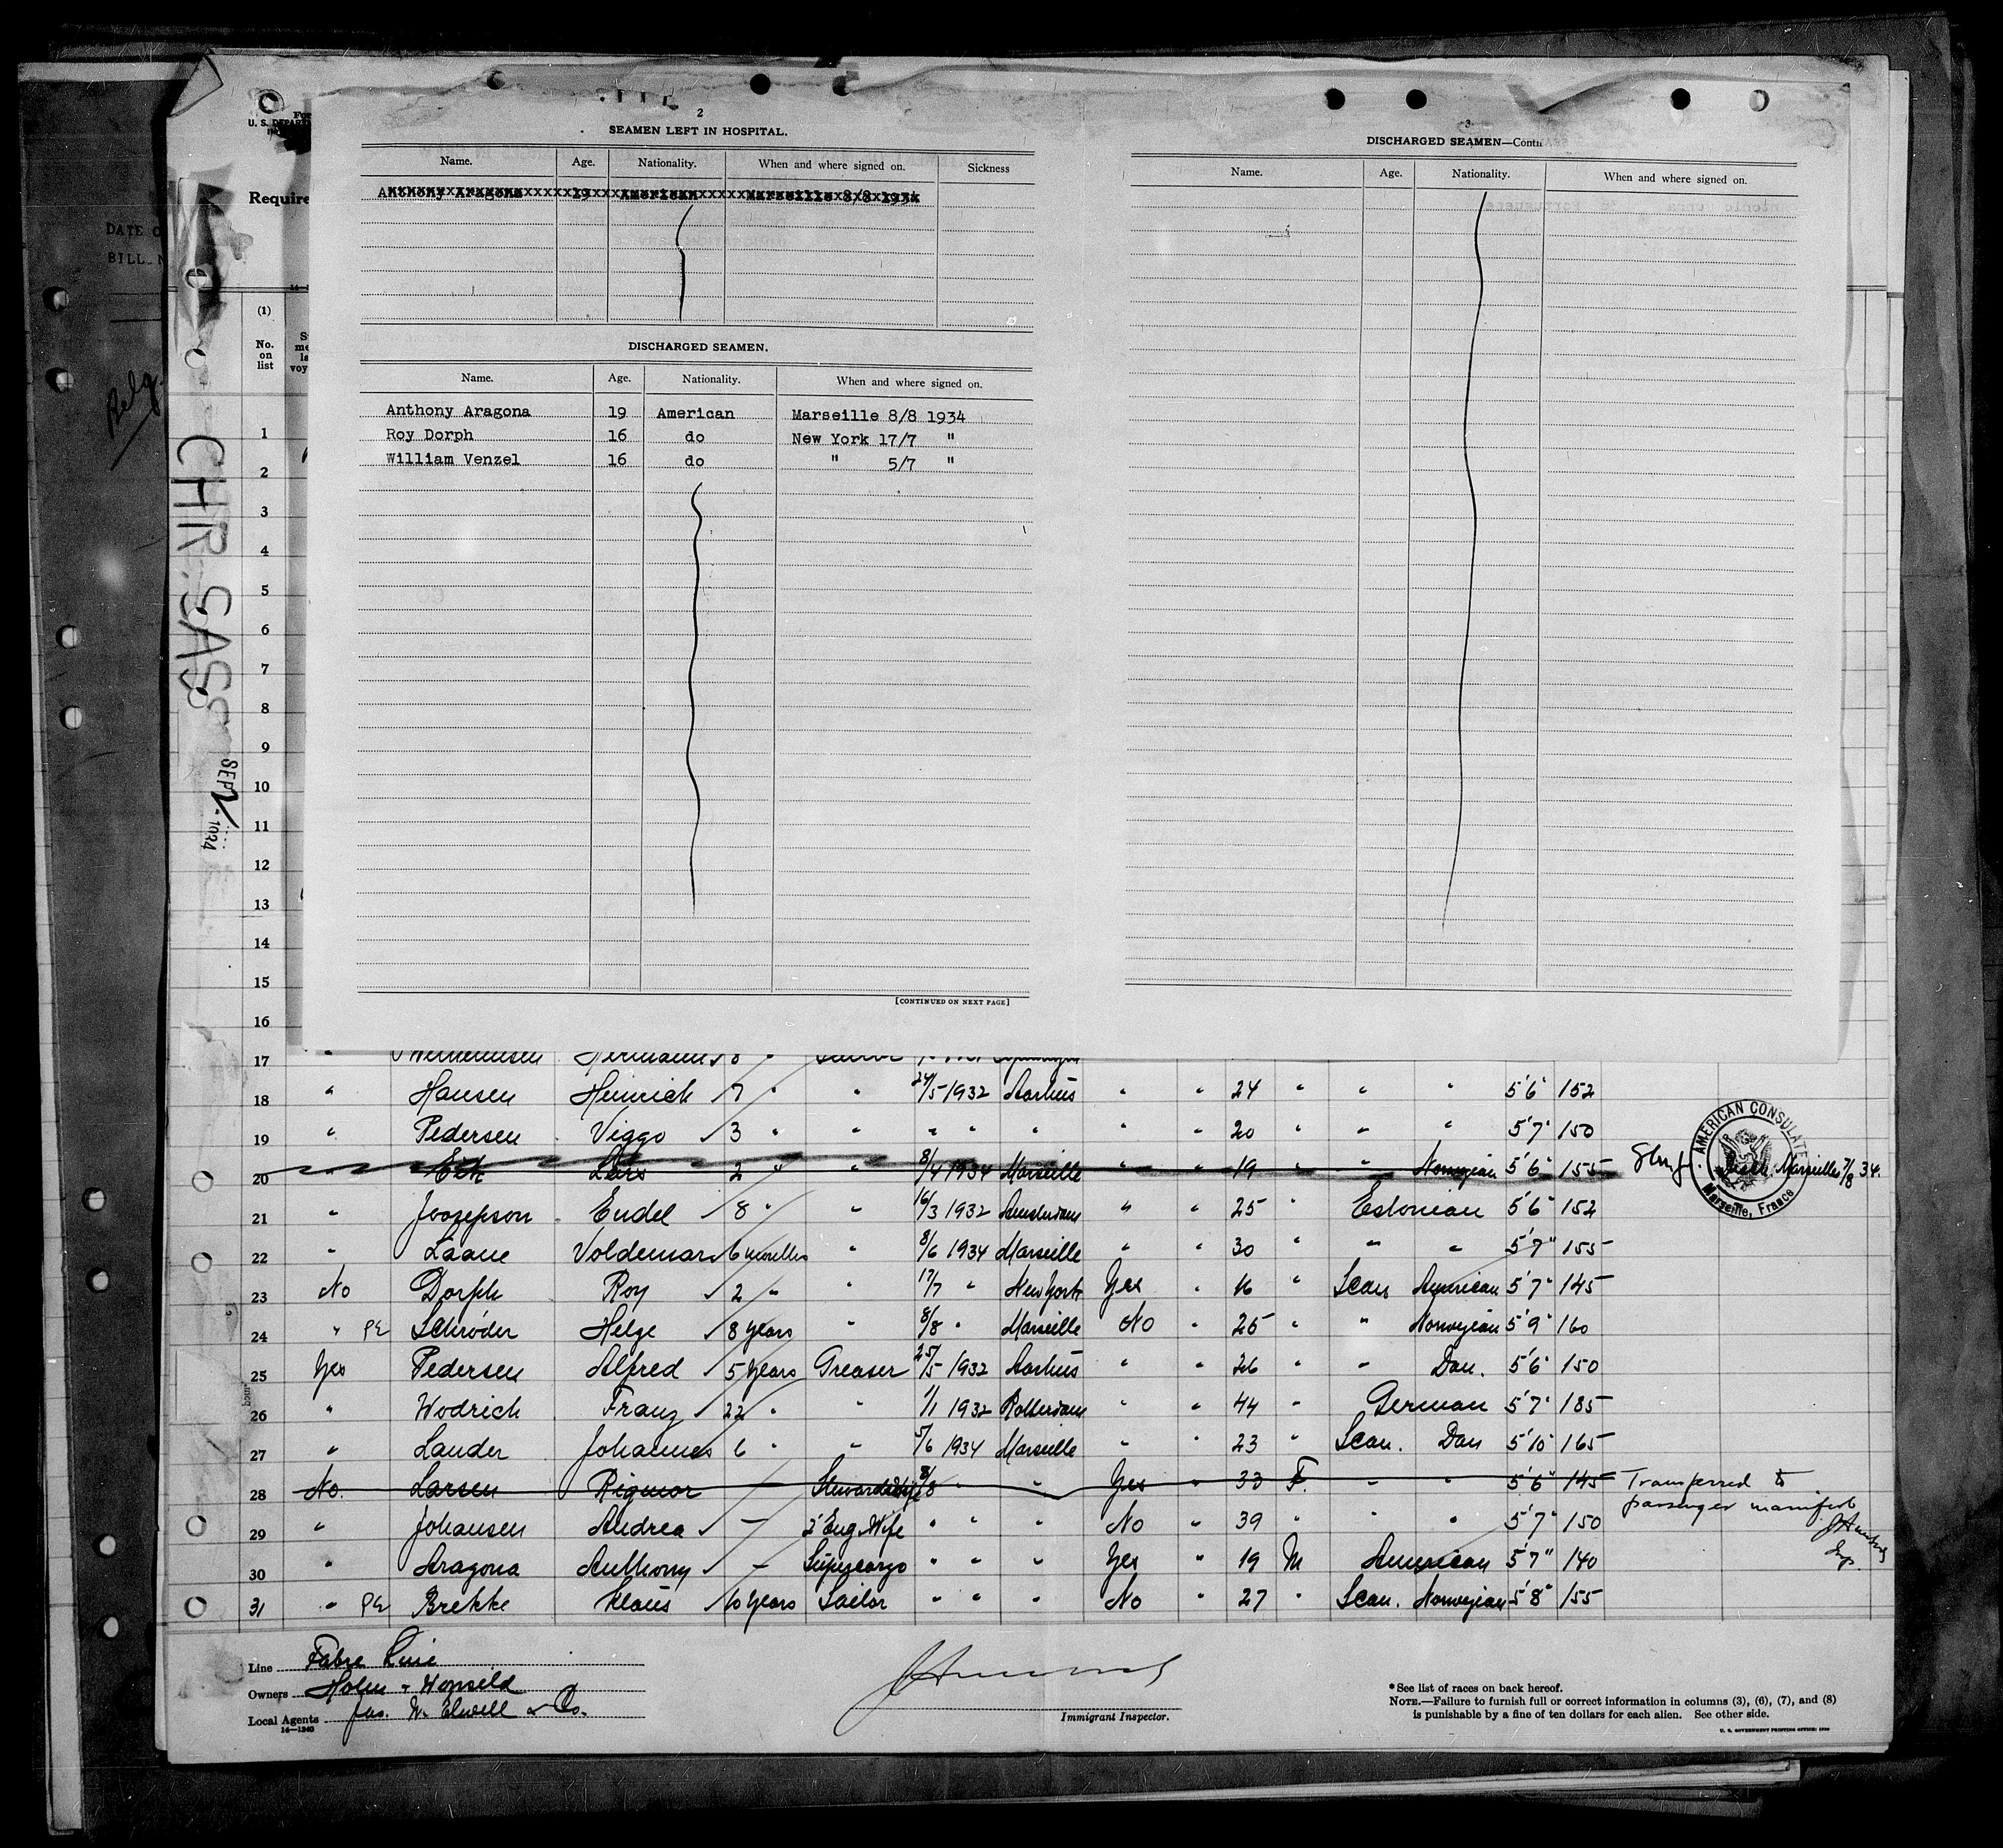 2
SEAMEN LEFT IN HOSPITAL.
Name. Age. Nationality. When and where signed on. Sickness
Anthony Aragona 19 American Marseille 8/8 1934
DISCHARGED SEAMEN.
Name. Age. Nationality. When and where signed on.
Anthony Aragona 19 American Marseille 8/8 1934
Roy Dorph 16 do New York 17/7 "
William Venzel 16 do " 5/7 "
[CONTINUED ON NEXT PAGE]
3
DISCHARGED SEAMEN—Contn
Name. Age. Nationality. When and where signed on.
U. S. DEPAR
Require
DATE O
BILL N
Belg.
CHR. SASS
SEP
(1)
No.
on
list
1
2
3
4
5
6
7
8
9
10
11
12
13
14
15
16
17 " Wilhelmsen Hermann 8 "
18 " Hansen Heinrich 7 " " 24/5 1932 Aarhus " " 24 " " " 5'6" 152
19 " Pedersen Viggo 3 " " " " " " " 20 " " " 5'7" 150
20 " Lars 2 " " 8/4 1934 Marseille " " 19 " " Norwegian 5'6" 155 Marseilles 7/8 34.
AMERICAN CONSULATE
Marseille, France
21 " Joosepson Endel 8 " " 16/3 1932 Amsterdam " " 25 " Estonian 5'6" 152
22 " Laane Voldemar 6 " 8/6 1934 Marseille " " 30 " " " 5'7" 155
23 No Dorph Roy 2 " " 17/7 " New York Yes " 16 " Scan American 5'7" 145
24 " PE Schröder Helge 8 years " 8/8 " Marseille No " 25 " " Norwegian 5'9" 160
25 Yes Pedersen Alfred 5 years Greaser 25/5 1932 Aarhus " " 26 " " Dan. 5'6" 150
26 " Wodrich Franz 22 " " 1/1 1932 Rotterdam " " 44 " German 5'7" 185
27 " Lauder Johannes 6 " " 5/6 1934 Marseille " " 23 " Scan. Dan 5'10" 165
28 No. Larsen Rigmor — 8/8 " " Yes " 33 F. " " 5'6" 145 Transferred to
passenger manifest
29 " Johansen Andrea — 2' Eng. Wife " " " No " 39 " " " 5'7" 150
30 " Aragona Anthony — Supercargo " " " Yes " 19 M American 5'7" 140
Insp.
31 " PE Brekke Klaus 10 years Sailor " " " No " 27 " Scan. Norwegian 5'8" 155
Line Fabre Line
Owners Holm & Wonsild
Local Agents Jas. W. Elwell & Co.
14—1240
Immigrant Inspector.
* See list of races on back hereof.
NOTE.—Failure to furnish full or correct information in columns (3), (6), (7), and (8)
is punishable by a fine of ten dollars for each alien. See other side.
U. S. GOVERNMENT PRINTING OFFICE: